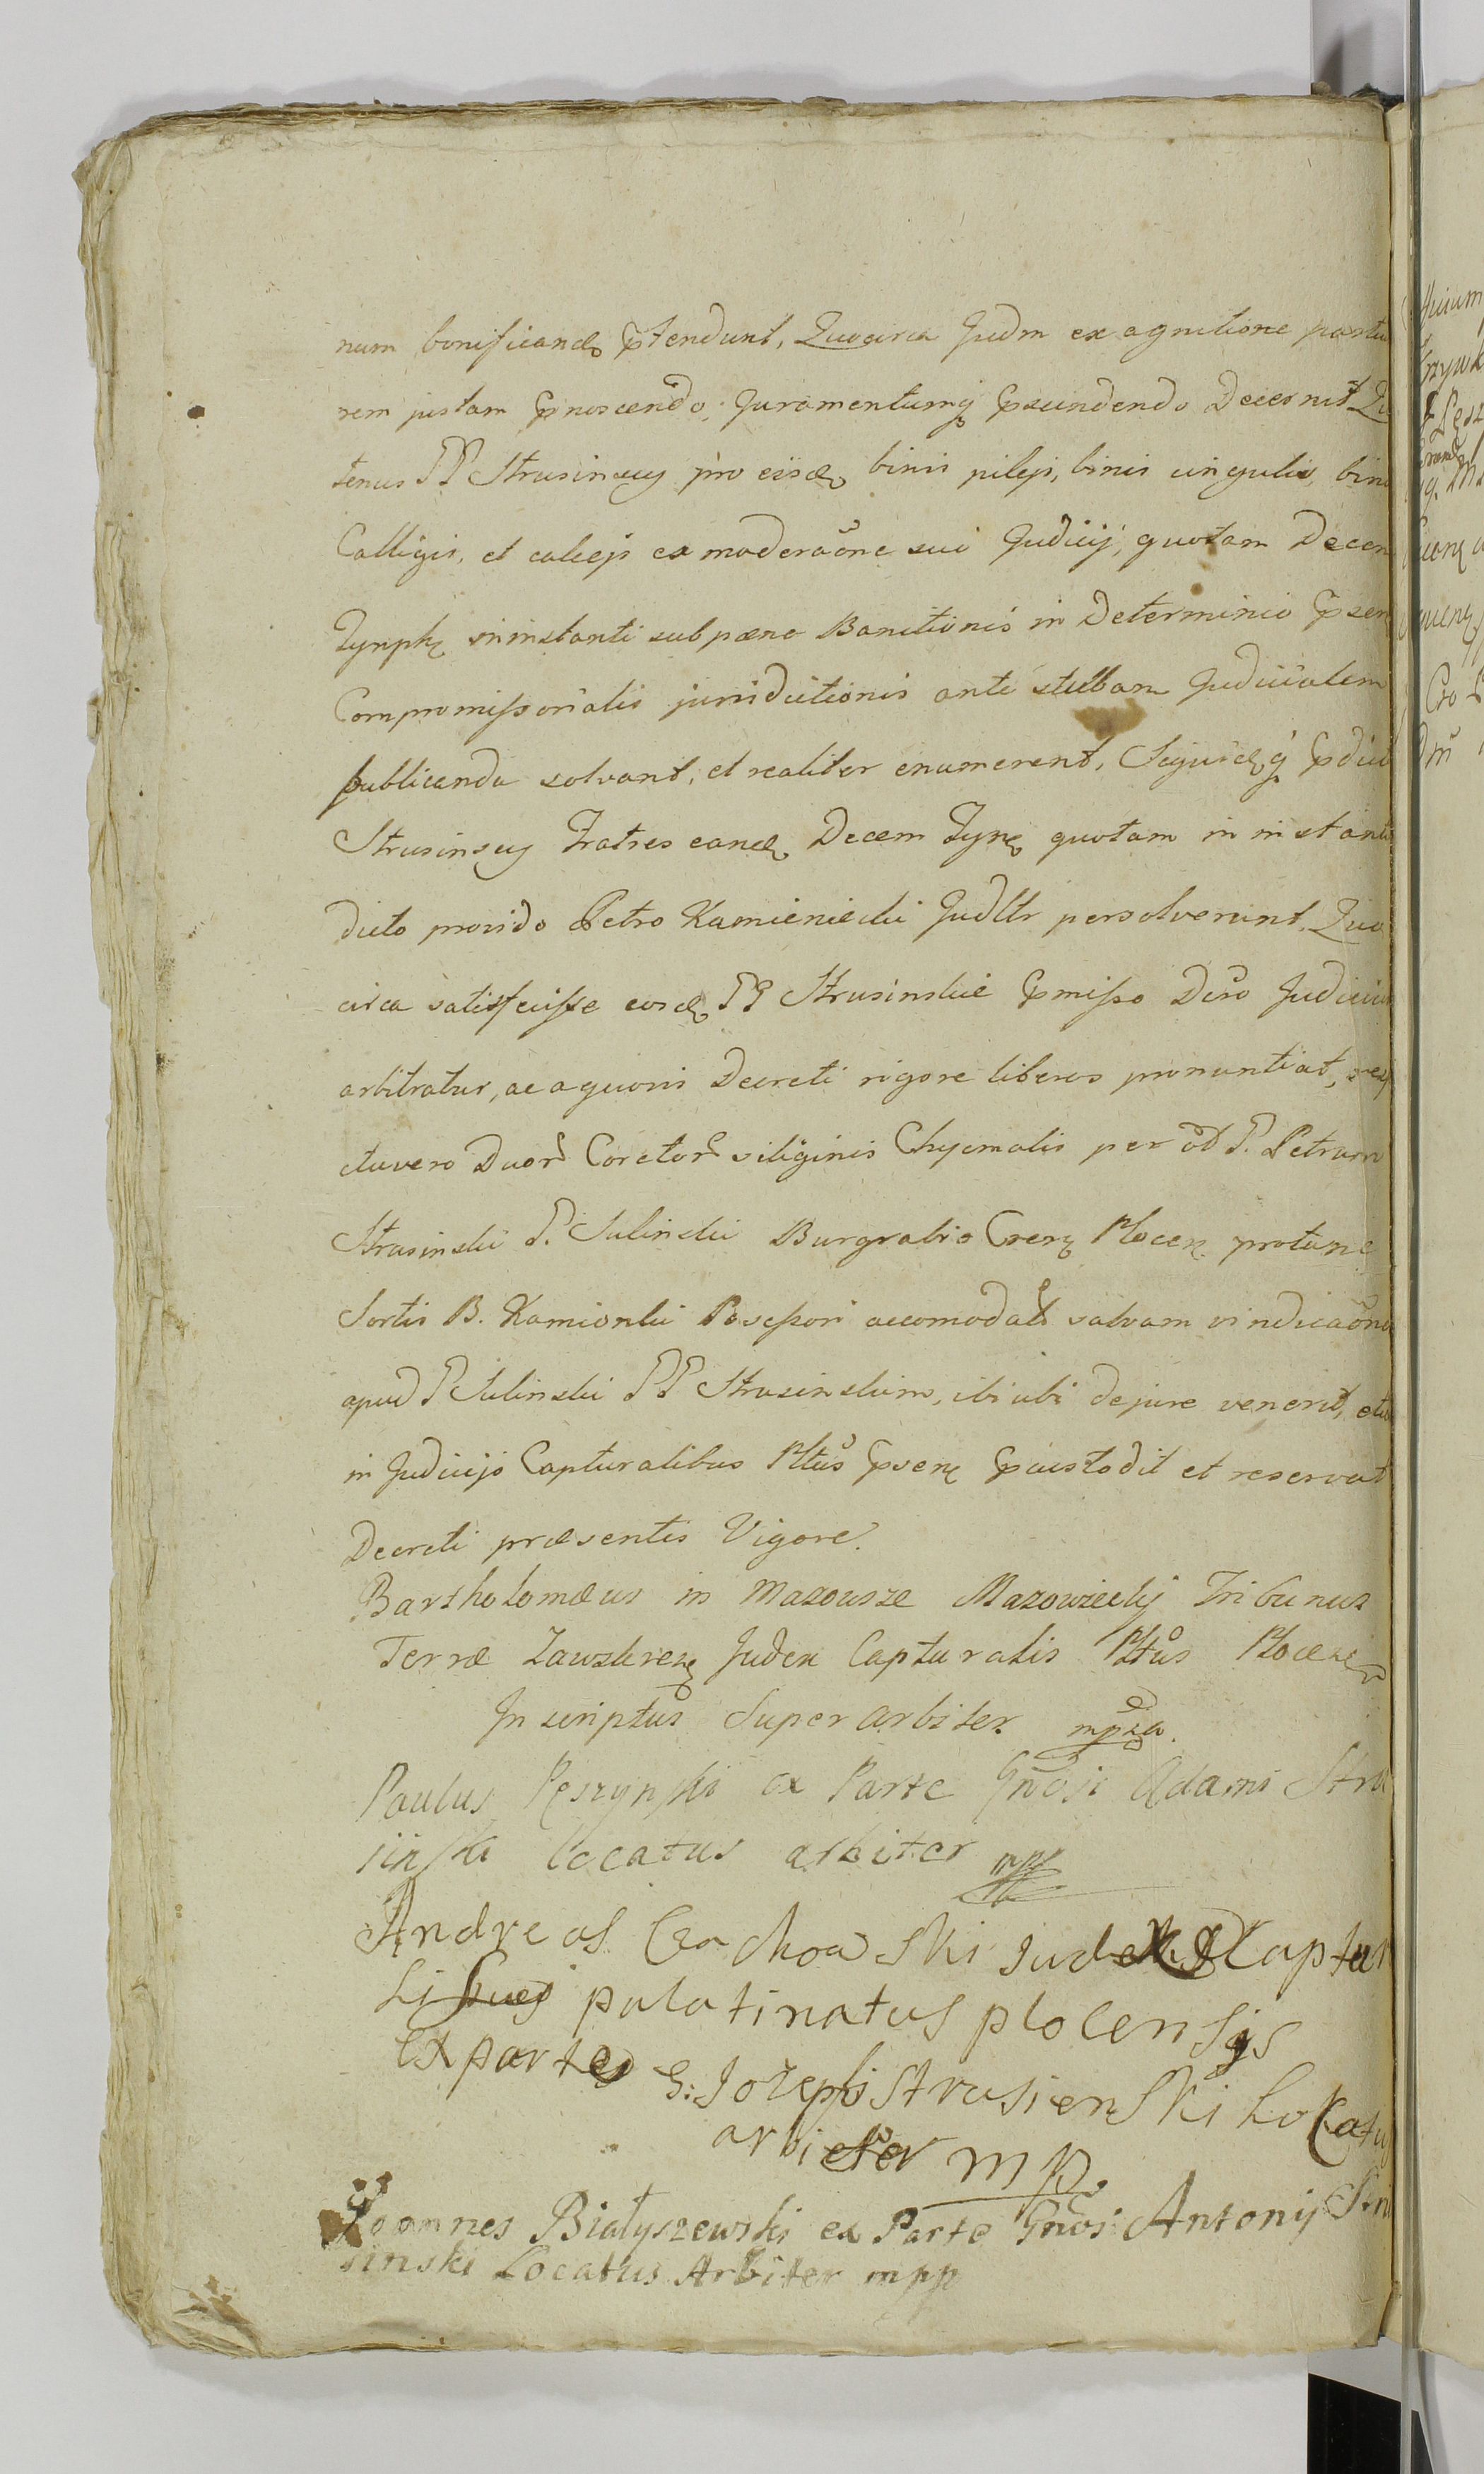 num bonificandę prtendunt, Quocirca Judm ex agnitione partiu
rem justam prnoscendo, Juramentumq prscindendo Decernit Qu
tenus PP Strusinscy pro eisdę binis pilejs, binis cingulis, bini
Calligis, et calcejs ex moderaõne sui Judicij, quotam Decem
Tynphę in instanti sub pæna Banitionis in Determinio prsen
Compromissorialis jurisdictionis ante stubam Judicialem
publicanda solvant, et realiter enumerent, Siquidęq prdict
Strusinscy Fratres eandę Decem Tynę quotam in instanti
dicto provido Petro Kamieniecki Judltr persolverunt, Quo
circa satisfecisse eosdę PP Strusinskie prmisso Dcro Judicium
arbitratur, ac a quovis Decreti rigore liberos pronuntiat,
ctu vero Duor Coretor siliginis Chyemalis per P. Petrum
Strusinski P. Sulinski Burgrabio Cren Plocen protunc
Sortis B. Kamionki Possessori accomodat salvam vindicaõne
apud P Sulinski PP Strusinskim, ibi ubi de jure venerit, etia
in Judicijs Capturalibus Pltus prsen prcustodit et reservat
Decreti præsentis Vigore.
Bartholomæus in Mazowsze Mazowiecky Tribunus
Terræ Zawskrezę Judex Capturalis Pltus Plocen
In scriptus Super arbiter mpra.
Paulus Pęszynski ex Parte Gnosi Adami Stru
sinski locatus arbiter mp
Andreas Czachowski Judex Captur
palatinatus plocensis
ex parte G: Jozephi Strusienski Lokatus
arbieter mp.
Joannes Białyszewski ex Parte Gnosi Antonij Stru
sinski Locatus Arbiter mpp